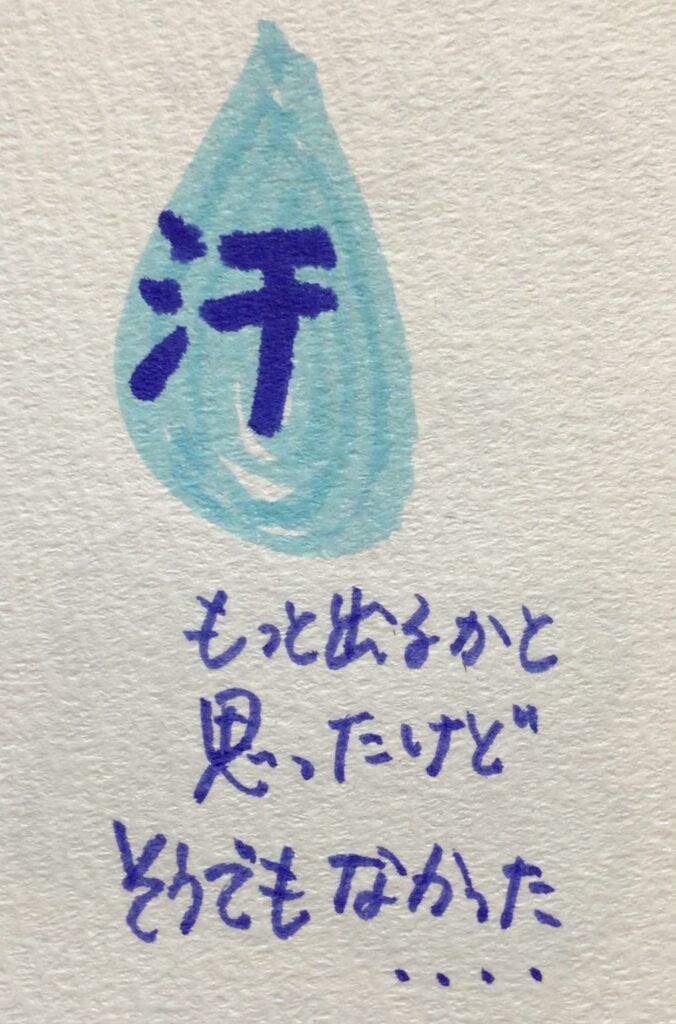 汗
もっと出るかと
思ったけど
そうでもなかった
‥‥